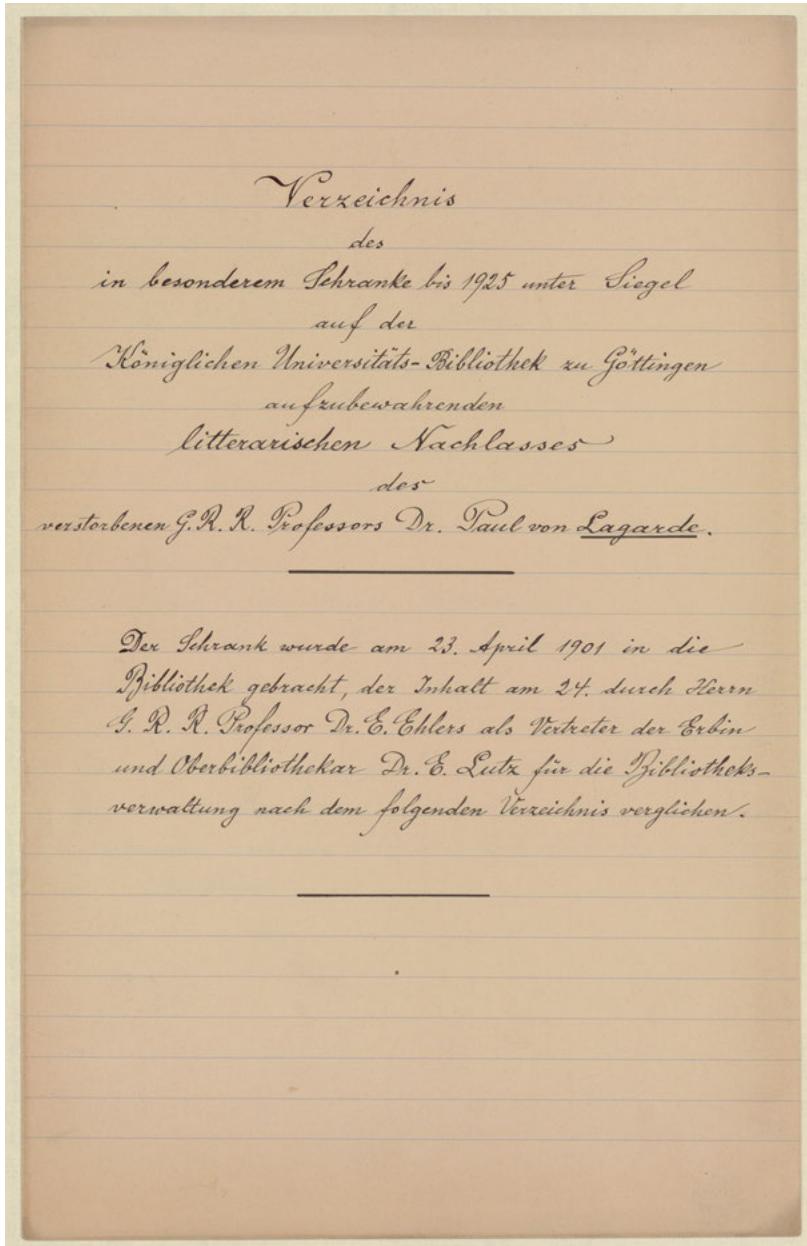 Verzeichnis
des
in besonderem Schranke bis 1925 unter Siegel
auf der
Königlichen Universitäts-Bibliothek zu Göttingen
aufzubewahrenden
litterarischen Nachlasses
des
verstorbenen G. R. R. Professors Dr. Paul von Lagarde.
Der Schrank wurde am 23. April 1901 in die
Bibliothek gebracht, der Inhalt am 24. durch Herrn
G. R. R. Professor Dr. E. Ehlers als Vertreter der Erbin
und Oberbibliothekar Dr. E. Lutz für die Bibliotheks-
verwaltung nach dem folgenden Verzeichnis verglichen.